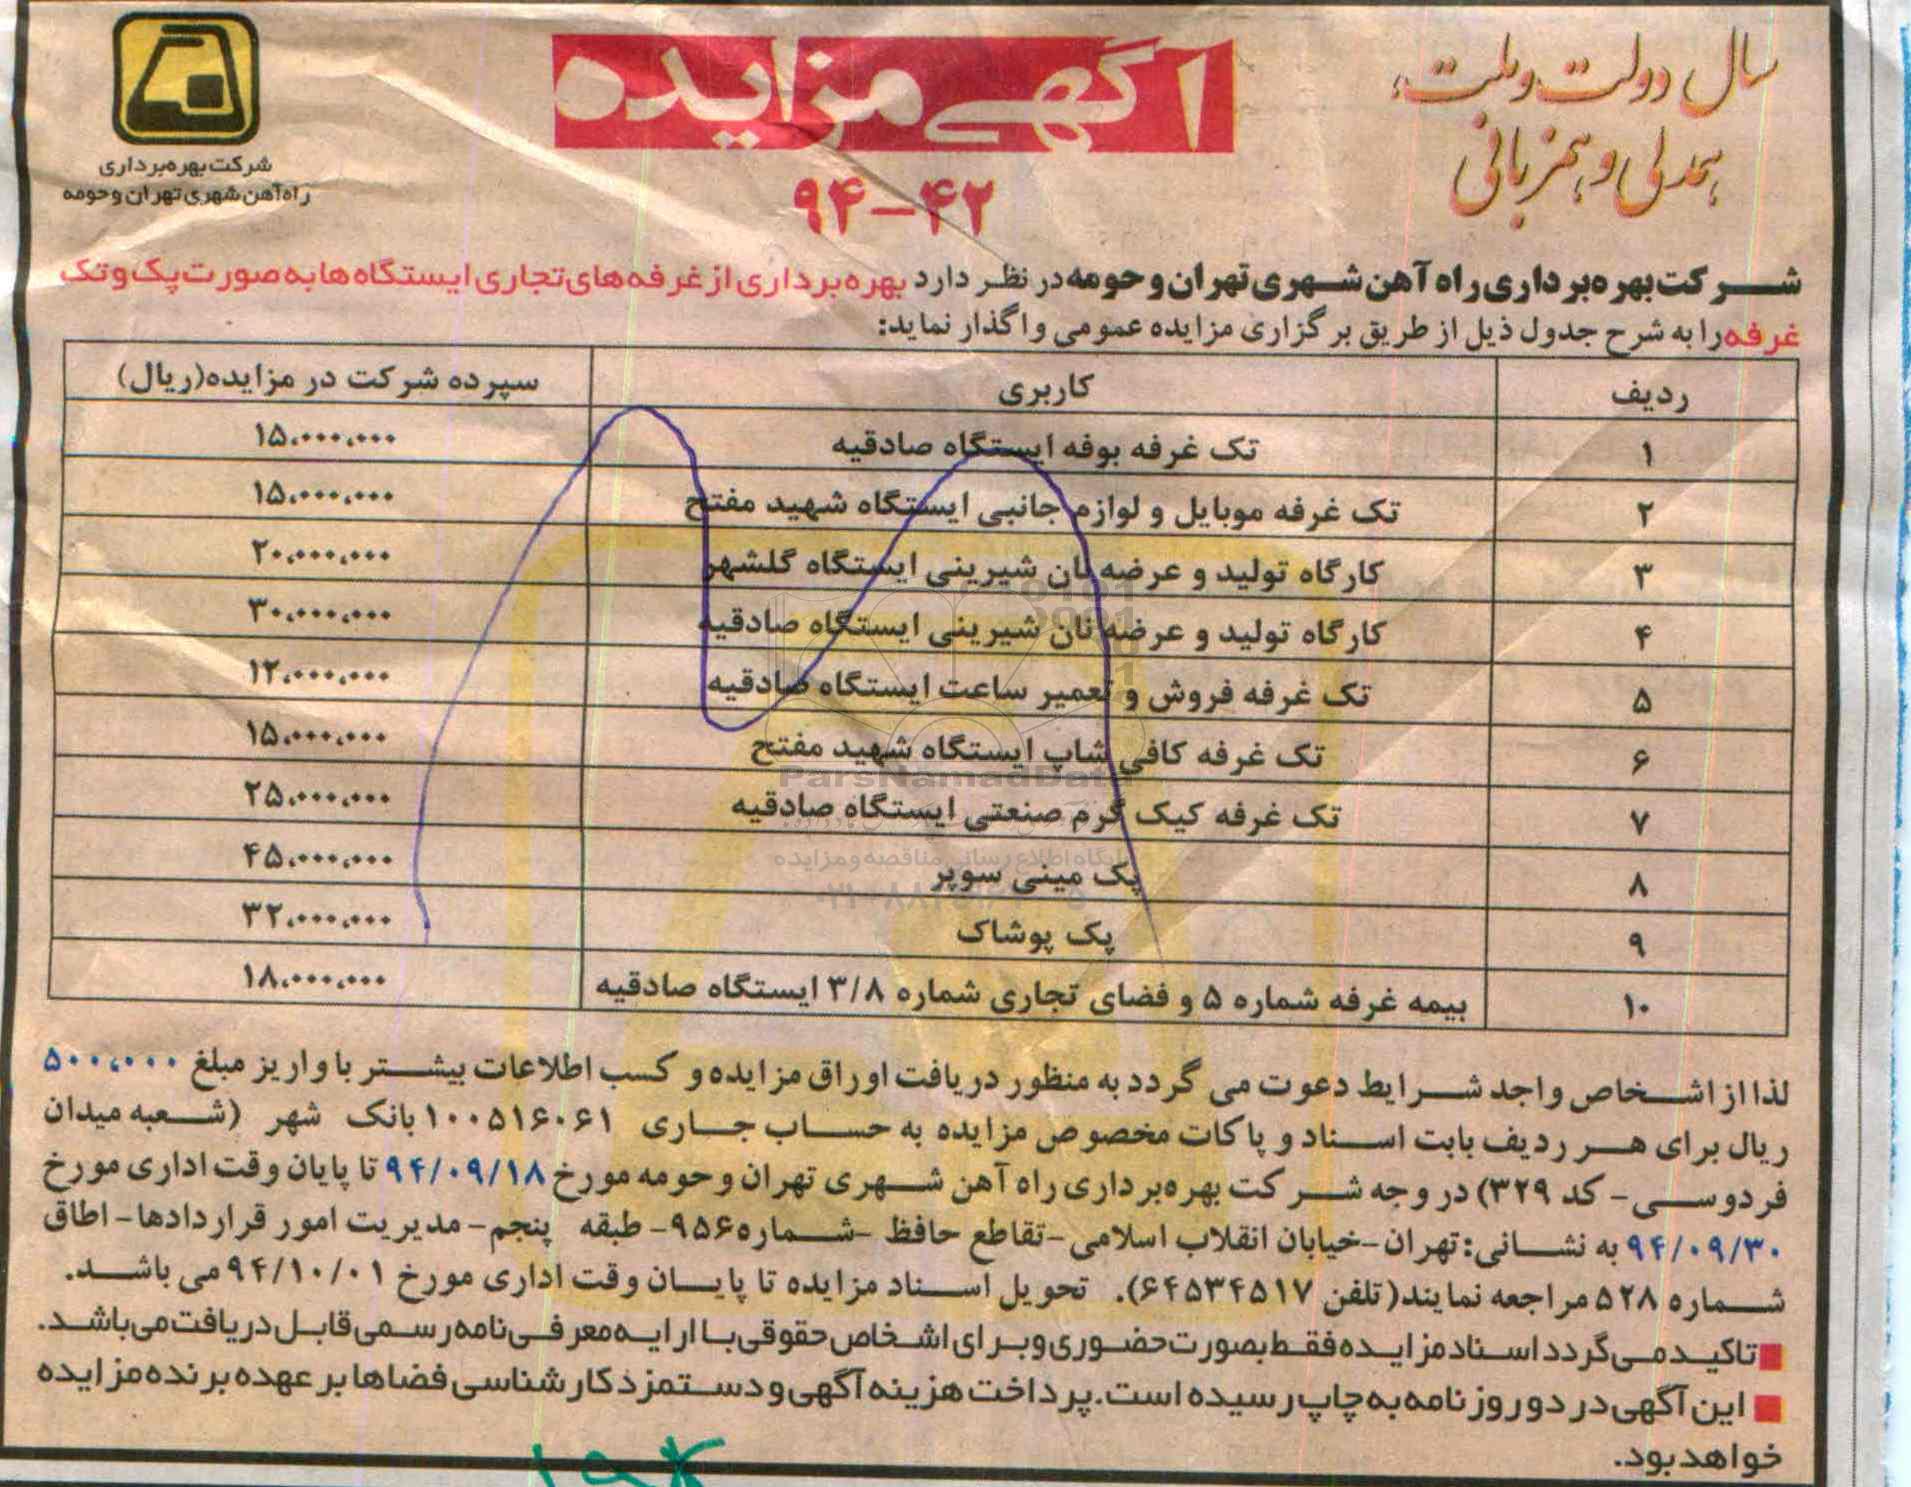 سال دولت و ملت،
همدلی و همزبانی
آگهی مزایده
۹۴-۴۲
شرکت بهره‌برداری
راه‌آهن شهری تهران و حومه
شرکت بهره‌برداری راه آهن شهری تهران و حومه در نظر دارد بهره‌برداری از غرفه‌های تجاری ایستگاه ها به صورت پک و تک
غرفه را به شرح جدول ذیل از طریق برگزاری مزایده عمومی واگذار نماید:
ردیف کاربری سپرده شرکت در مزایده(ریال)
۱ تک غرفه بوفه ایستگاه صادقیه ۱۵،۰۰۰،۰۰۰
۲ تک غرفه موبایل و لوازم جانبی ایستگاه شهید مفتح ۱۵،۰۰۰،۰۰۰
۳ کارگاه تولید و عرضه نان شیرینی ایستگاه گلشهر ۲۰،۰۰۰،۰۰۰
۴ کارگاه تولید و عرضه نان شیرینی ایستگاه صادقیه ۳۰،۰۰۰،۰۰۰
۵ تک غرفه فروش و تعمیر ساعت ایستگاه صادقیه ۱۲،۰۰۰،۰۰۰
۶ تک غرفه کافی شاپ ایستگاه شهید مفتح ۱۵،۰۰۰،۰۰۰
۷ تک غرفه کیک گرم صنعتی ایستگاه صادقیه ۲۵،۰۰۰،۰۰۰
۸ پک مینی سوپر ۴۵،۰۰۰،۰۰۰
۹ پک پوشاک ۳۲،۰۰۰،۰۰۰
۱۰ بیمه غرفه شماره ۵ و فضای تجاری شماره ۳/۸ ایستگاه صادقیه ۱۸،۰۰۰،۰۰۰
ParsNamadData
پایگاه اطلاع رسانی مناقصه و مزایده
لذا از اشخاص واجد شرایط دعوت می گردد به منظور دریافت اوراق مزایده و کسب اطلاعات بیشتر با واریز مبلغ ۵۰۰،۰۰۰
ریال برای هر ردیف بابت اسناد و پاکات مخصوص مزایده به حساب جاری ۱۰۰۵۱۶۰۶۱ بانک شهر (شعبه میدان
فردوسی- کد ۳۲۹) در وجه شرکت بهره‌برداری راه آهن شهری تهران و حومه مورخ ۹۴/۰۹/۱۸ تا پایان وقت اداری مورخ
۹۴/۰۹/۳۰ به نشانی: تهران-خیابان انقلاب اسلامی-تقاطع حافظ -شماره۹۵۶- طبقه پنجم- مدیریت امور قراردادها- اطاق
شماره ۵۲۸ مراجعه نمایند(تلفن ۶۴۵۳۴۵۱۷). تحویل اسناد مزایده تا پایان وقت اداری مورخ ۹۴/۱۰/۰۱ می باشد.
■ تاکید می‌گردد اسناد مزایده فقط بصورت حضوری و برای اشخاص حقوقی با ارایه معرفی نامه رسمی قابل دریافت می‌باشد.
■ این آگهی در دو روزنامه به چاپ رسیده است. پرداخت هزینه آگهی و دستمزد کارشناسی فضاها بر عهده برنده مزایده
خواهد بود.